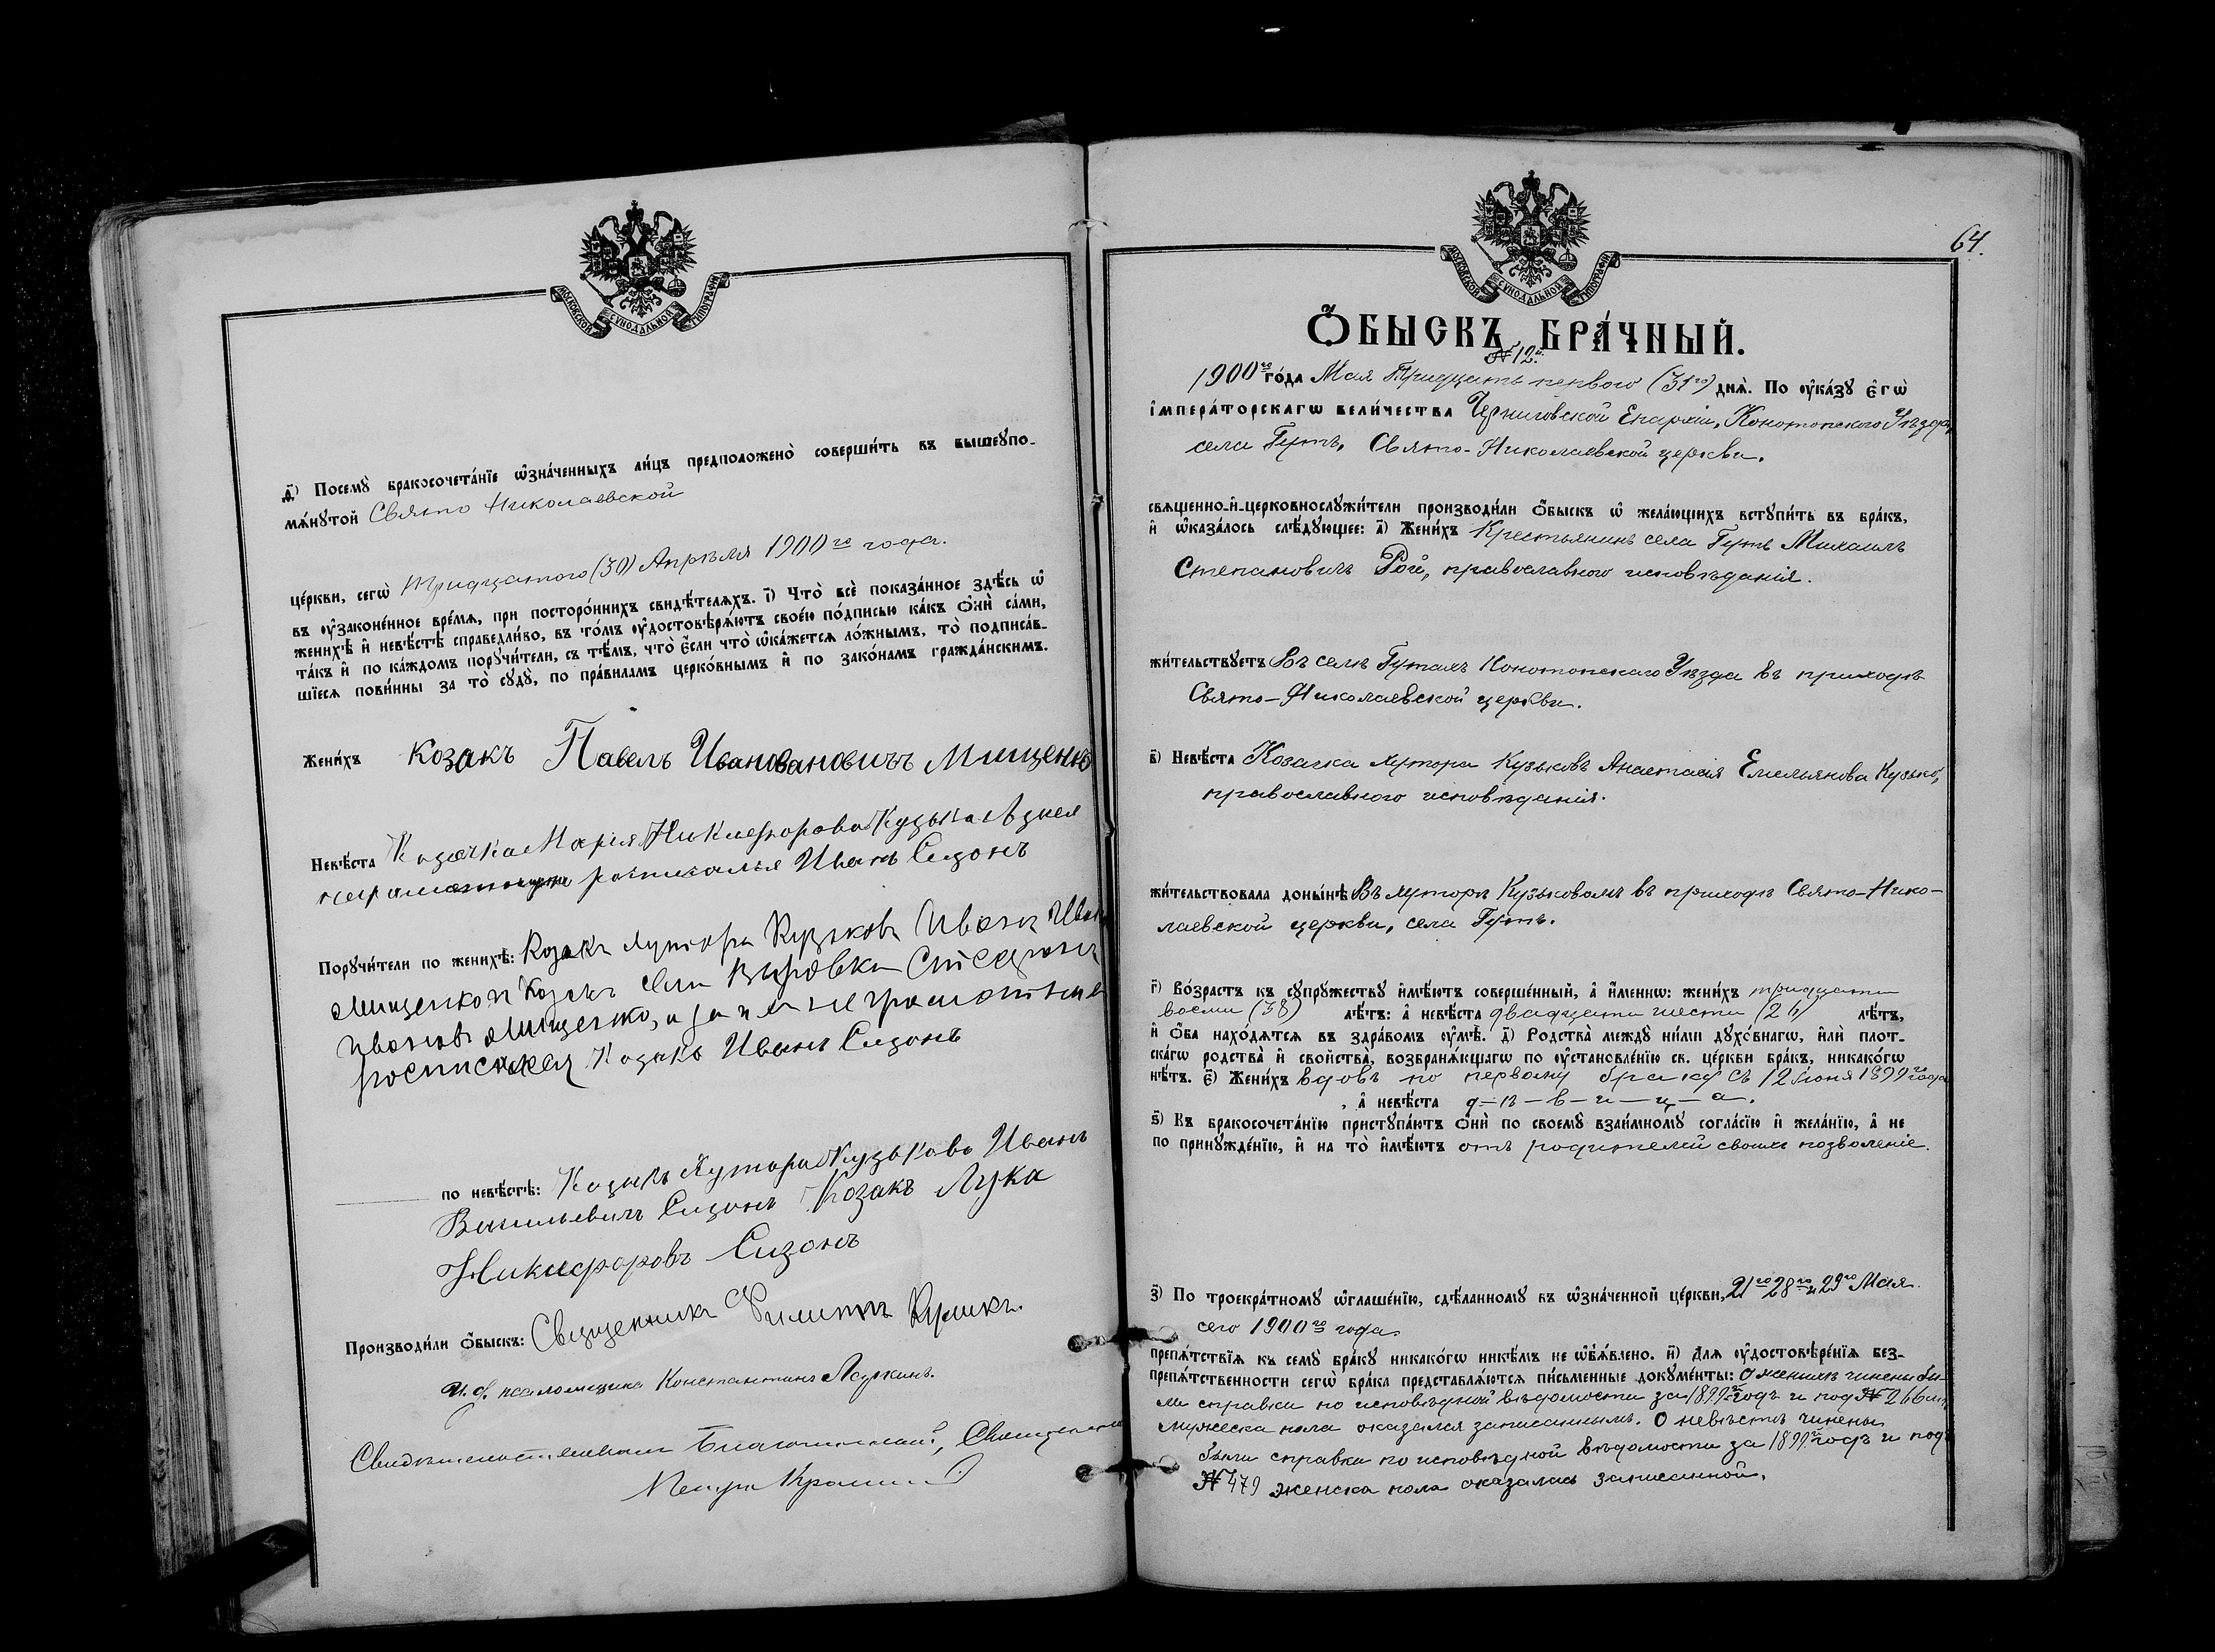 МОСКОВСКОЙ СѴНОДАЛЬНОЙ ТИПОГРАФІИ
д҃) Посемꙋ̀ бракосочета́нїе ѡ҆зна́ченныхъ ли́цъ предположено̀ соверши́ть въ вышеꙋпо-
мѧ́нꙋтой Свято Николаевской
це́ркви, сегѡ̀ тридцатого (30) Апрѣля 1900го года.
въ ᲂу҆законе́нное вре́мѧ, при посторо́ннихъ свидѣ́телѧхъ. і҃) Что̀ всѐ пока́занное здѣ́сь ѡ҆
женихѣ̀ и҆ невѣ́стѣ справедли́во, въ то́мъ ᲂу҆достовѣрѧ́ютъ свое́ю по́дписью ка́къ ѻ҆нѝ са́ми,
та́къ и҆ по ка́ждомъ порꙋчи́тели, съ тѣ́мъ, что̀ є҆́сли что̀ ѡ҆ка́жетсѧ ло́жнымъ, то̀ подписа́в-
шїесѧ пови́нны за то̀ сꙋдꙋ̀, по пра́виламъ церко́внымъ и҆ по зако́намъ гражда́нскимъ.
Жени́хъ козакъ Павелъ Ивановановичъ Мищенко
Невѣ́ста Козачка Марія Никифорова Кузько а за нея
неграмотную росписался Иванъ Сизонъ
Порꙋчи́тели по женихѣ̀: Козакъ хутора Кузьковъ Иванъ
Мищенко и Козакъ села Вировки Стефанъ
Ивановъ Мищенко, а за них неграмотных
росписался Козакъ Иванъ Сизонъ
по невѣ́стѣ: Козакъ Хутора Кузьковъ Иванъ
Васильевичъ Сизонъ Козакъ Лука
Никифоровъ Сизонъ
Производи́ли ѻ҆́быскъ: Священникъ Филиппъ Куликъ.
И. д. псаломщика Константинъ
Свидѣтельствовалъ Благочинный, Священникъ
Петръ
64.
МОСКОВСКОЙ СѴНОДАЛЬНОЙ ТИПОГРАФІИ
Ѻ҆БЫСКЪ БРА́ЧНЫЙ.
№ 12й
1900го го́да Мая Тридцать первого (31го) днѧ̀. По ᲂу҆ка́зꙋ є҆гѡ̀
і҆мпера́торскагѡ вели́чества Черниговской Епархіи, Конотопского Уѣзда,
села Гутъ, Свято-Николаевской церкви.
свѧщенно-и҆-церковнослꙋжи́тели производи́ли ѻ҆́быскъ ѡ҆ жела́ющихъ встꙋпи́ть въ бра́къ,
и҆ ѡ҆каза́лось слѣ́дꙋющее: а҃) Жени́хъ Крестьянинъ села Гутъ Михаилъ
Степановичъ Рогъ, православного исповѣданія.
жи́тельствꙋетъ Въ селѣ Гутахъ Конотопскаго Уѣзда въ приходѣ
Свято-Николаевской церкви.
в҃) Невѣ́ста Козачка хутора Кузьковъ Анастасія Емельянова Кузько,
православного исповѣданія.
жи́тельствовала доны́нѣ Въ хуторѣ Кузьковомъ въ приходѣ Свято-Нико-
лаевской церкви, села Гутъ.
г҃) Во́зрастъ къ сꙋпрꙋ́жествꙋ и҆мѣ́ютъ соверше́нный, а҆ и҆́меннѡ: жени́хъ тридцати
восьми (38) лѣ́тъ: а҆ невѣ́ста двадцати шести (26) лѣ́тъ,
и҆ ѻ҆́ба нахо́дѧтсѧ въ здра́вомъ ᲂу҆мѣ̀. д҃) Родства̀ междꙋ ни́ми дꙋхо́внагѡ, и҆лѝ плот-
ска́гѡ родства̀ и҆ сво́йства, возбранѧ́ющагѡ по ᲂу҆становле́нїю св. це́ркви бра́къ, никако́гѡ
нѣ́тъ. є҃) Жени́хъ вдовъ по первому браку съ 12 Іюня 1899го года
, а҆ невѣ́ста д-ѣ-в-и-ц-а.
ѕ҃) Къ бракосочета́нїю пристꙋпа́ютъ ѻ҆нѝ по своемꙋ̀ взаи́мномꙋ согла́сїю и҆ жела́нїю, а҆ не
по принꙋжде́нїю, и҆ на то̀ и҆мѣ́ютъ отъ родителей своихъ позволеніе.
з҃) По троекра́тномꙋ ѡ҆глаше́нїю, сдѣ́ланномꙋ въ ѡ҆зна́ченной це́ркви, 21го 28го и 29го Мая
сего 1900го года.
препѧ́тствїѧ къ семꙋ̀ бра́кꙋ никако́гѡ никѣ́мъ не ѡ҆б̾ѧ́влено. и҃) Для ᲂу҆достовѣре́нїѧ без-
препѧ́тственности сегѡ̀ бра́ка представлѧ́ются пи́сьменные докꙋме́нты: О женихѣ чинены бы-
ли справки по исповѣдной вѣдомости за 1899й годъ и под № 266
мужеска пола оказался записаннымъ. О невѣстѣ чинены
были справки по исповѣдной вѣдомости за 1899й годъ и подъ
№ 479 женска пола оказалась записанной.